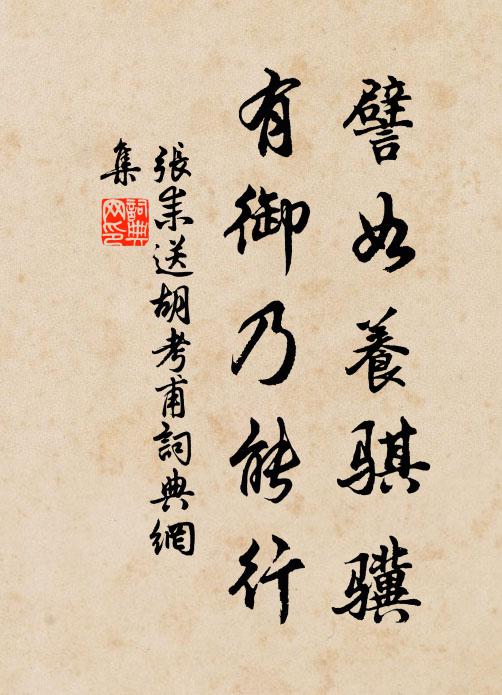 譬如養騏驥
有御乃能行
張耒送胡考甫詞典網
集
詞典
网印